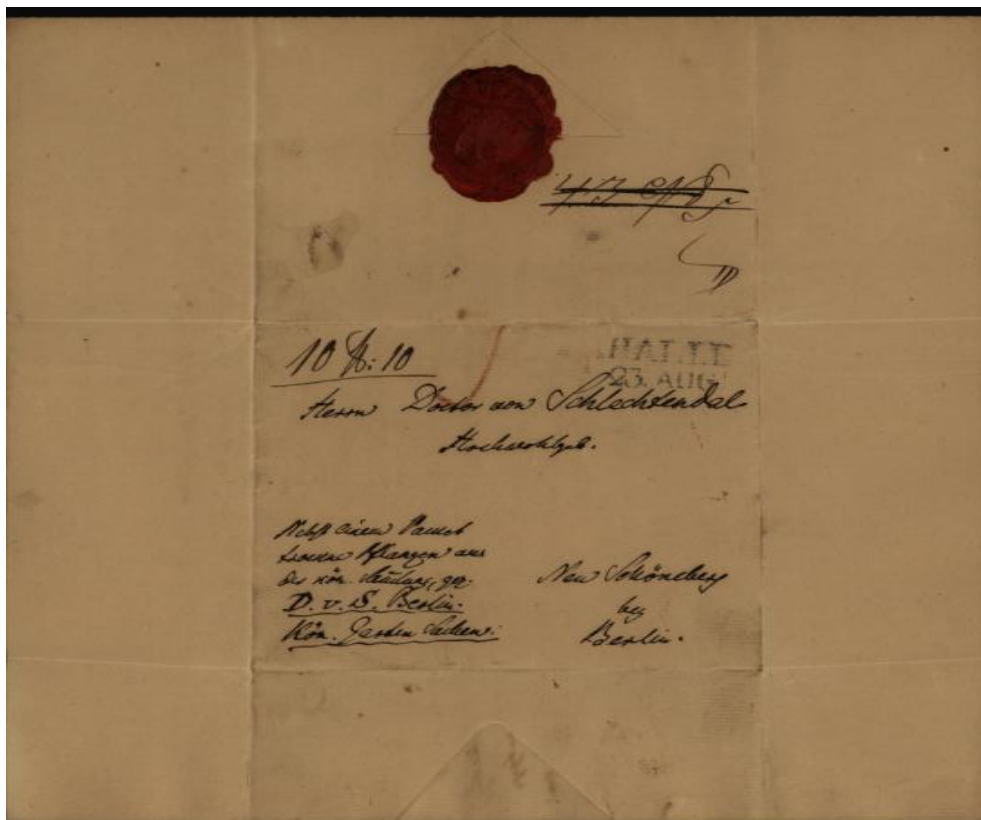 10 ℔: 10
HALLE
23. AUG
Herrn Doctor von Schlechtendal
Hochwohlgeb.
Nebst einem
trockne Pflanzen aus
der kön.
D. v. S. Berlin.
Kön. Garten Sachen.
Neu Schöneberg
bey
Berlin.